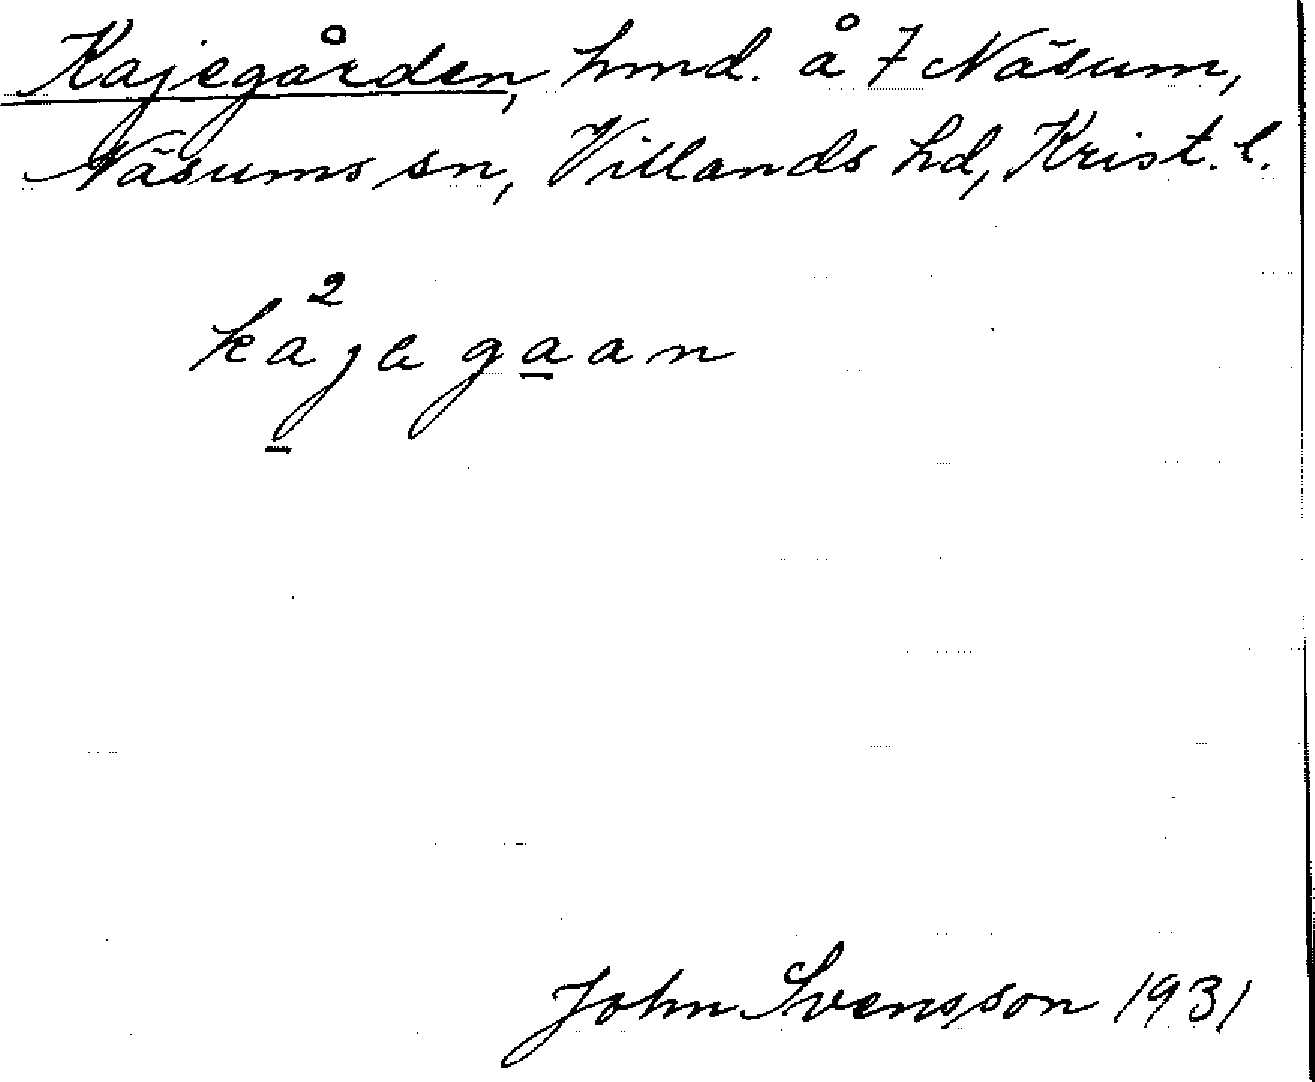 Kajegården, hmd. å 7 Näsum,
Näsums sn, Villands hd, Krist. l.
2
kajegaan
John Svensson 1931